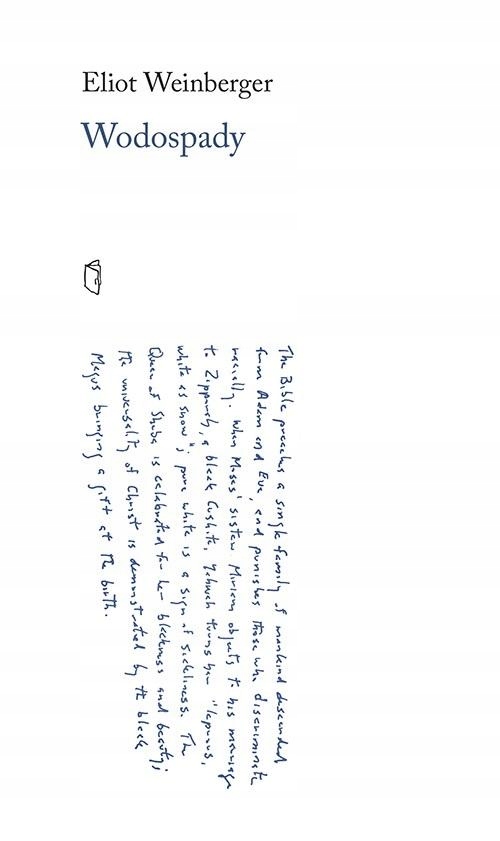 Eliot Weinberger
Wodospady
The Bible preaches a single family of mankind descended
from Adam and Eve, and punishes those who discriminate
racially. When Moses' sister Miriam objects to his marriage
to Zipporah, a black Cushite, Yahweh turns her "leprous,
white as snow"; pure white is a sign of sickliness. The
Queen of Sheba is celebrated for her blackness and beauty;
the universality of Christ is demonstrated by the black
Magus bringing a gift at the birth.